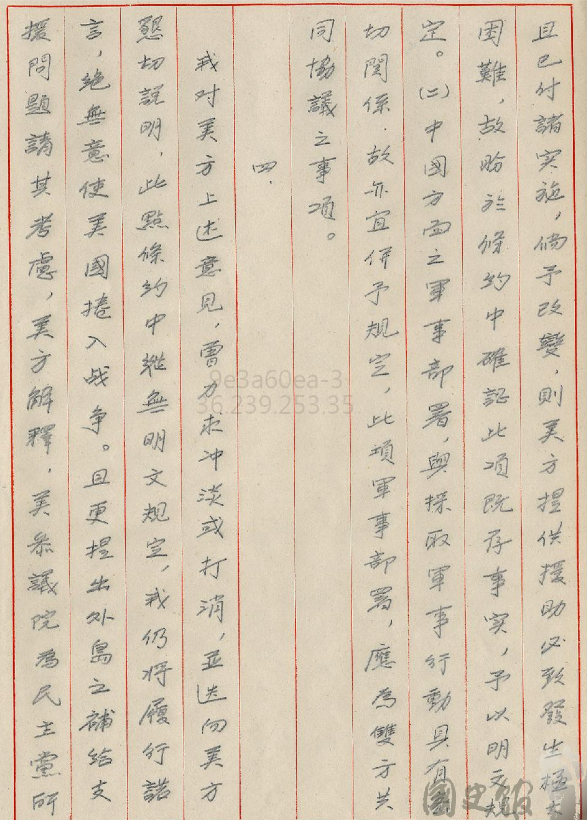 且已付諸实施,倘予改變,則美方提供援助必致發生極大
困難,故盼於條約中確認此項既存事实,予以明文規
定。(二)中國方面之軍事部署,與採取軍事行動具有
切関係.故亦宜併予規定,此項軍事部署,應為雙方共
同協議之事項。
四.
我对美方上述意見,曾力求冲淡或打消,並迭向美方
懇切說明,此點條約中縱無明文規定,我仍将履行諾
言,絕無意使美國捲入战争。且更提出外島之補給支
援問題請其考慮,美方解釋,美参議院為民主黨所
9e3a60ea-3-
36.239.253.35
國史館